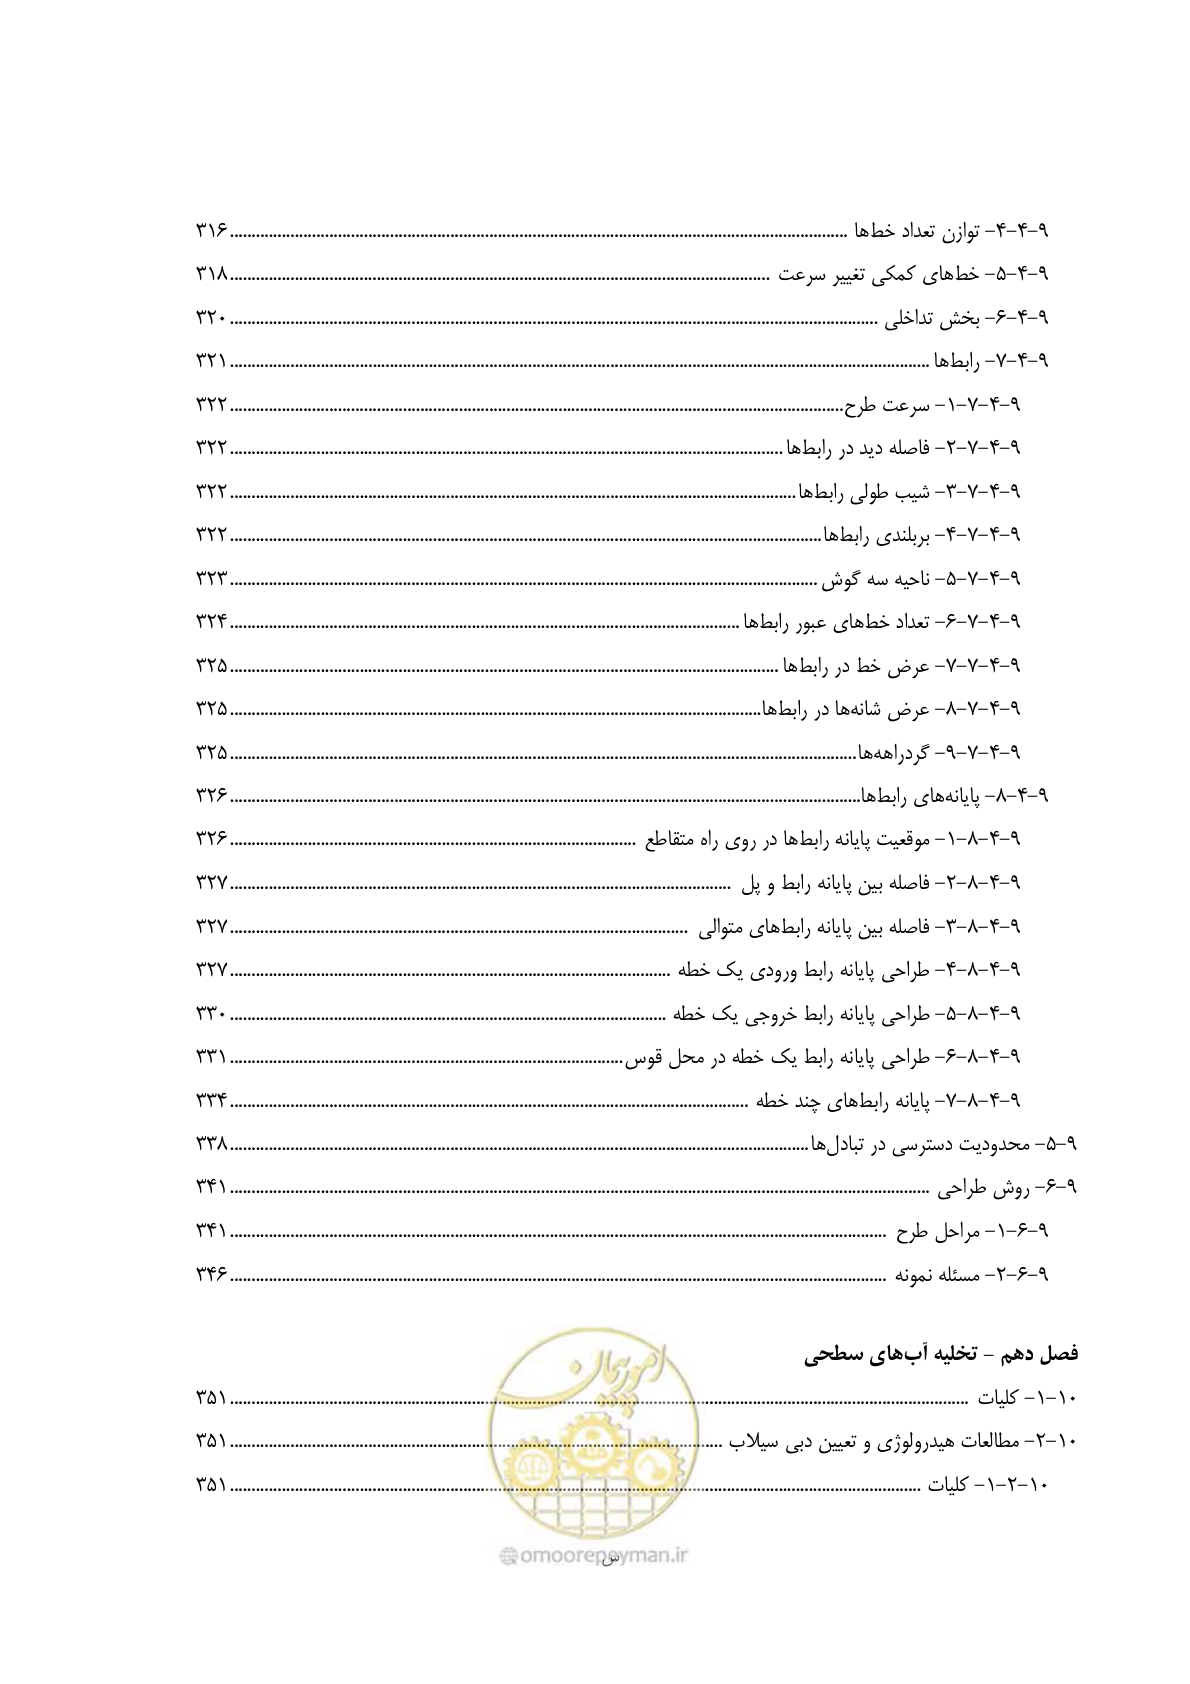 ۹-۴-۴- توازن تعداد خط‌ها ........ ۳۱۶
۹-۴-۵- خط‌های کمکی تغییر سرعت ........ ۳۱۸
۹-۴-۶- بخش تداخلی ........ ۳۲۰
۹-۴-۷- رابط‌ها ........ ۳۲۱
۹-۴-۷-۱- سرعت طرح ........ ۳۲۲
۹-۴-۷-۲- فاصله دید در رابط‌ها ........ ۳۲۲
۹-۴-۷-۳- شیب طولی رابط‌ها ........ ۳۲۲
۹-۴-۷-۴- بربلندی رابط‌ها ........ ۳۲۲
۹-۴-۷-۵- ناحیه سه گوش ........ ۳۲۳
۹-۴-۷-۶- تعداد خط‌های عبور رابط‌ها ........ ۳۲۴
۹-۴-۷-۷- عرض خط در رابط‌ها ........ ۳۲۵
۹-۴-۷-۸- عرض شانه‌ها در رابط‌ها ........ ۳۲۵
۹-۴-۷-۹- گردراهه‌ها ........ ۳۲۵
۹-۴-۸- پایانه‌های رابط‌ها ........ ۳۲۶
۹-۴-۸-۱- موقعیت پایانه رابط‌ها در روی راه متقاطع ........ ۳۲۶
۹-۴-۸-۲- فاصله بین پایانه رابط و پل ........ ۳۲۷
۹-۴-۸-۳- فاصله بین پایانه رابط‌های متوالی ........ ۳۲۷
۹-۴-۸-۴- طراحی پایانه رابط ورودی یک خطه ........ ۳۲۷
۹-۴-۸-۵- طراحی پایانه رابط خروجی یک خطه ........ ۳۳۰
۹-۴-۸-۶- طراحی پایانه رابط یک خطه در محل قوس ........ ۳۳۱
۹-۴-۸-۷- پایانه رابط‌های چند خطه ........ ۳۳۴
۹-۵- محدودیت دسترسی در تبادل‌ها ........ ۳۳۸
۹-۶- روش طراحی ........ ۳۴۱
۹-۶-۱- مراحل طرح ........ ۳۴۱
۹-۶-۲- مسئله نمونه ........ ۳۴۶
فصل دهم – تخلیه آب‌های سطحی
۱۰-۱- کلیات ........ ۳۵۱
۱۰-۲- مطالعات هیدرولوژی و تعیین دبی سیلاب ........ ۳۵۱
۱۰-۲-۱- کلیات ........ ۳۵۱
امور پیمان
@omoorepeyman.ir
س